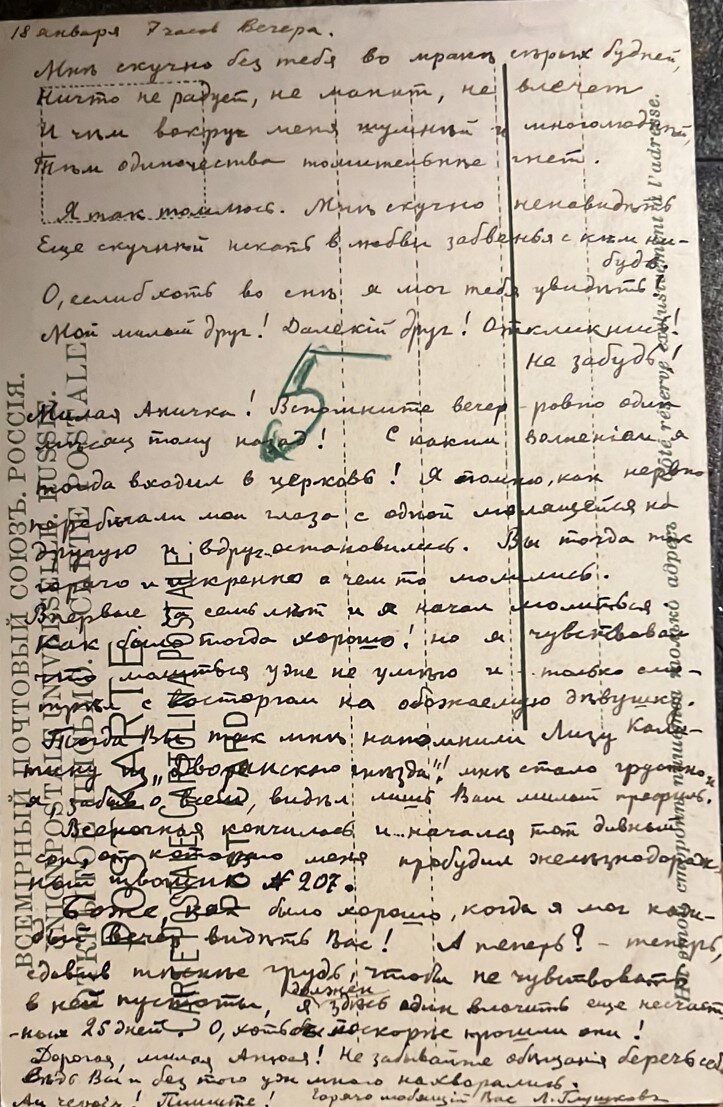 18 января 7 часов вечера.
Мнѣ скучно без тебя во мракѣ сѣрых будней,
Ничто не радует, не манит, не влечет
И чѣм вокруг меня шумнѣй и многолюднѣй,
Тѣм одиночества томительнѣе гнет.
Я так томлюсь. Мнѣ скучно ненавидѣть
Еще скучнѣй искать в любви забвенья с кѣм ни-
будь.
О, еслиб хоть во снѣ я мог тебя увидѣть
Мой милый друг! Далекій друг! Откликнись!
не забудь!
5
Милая Аничка! Вспомните вечер ровно один
мѣсяц тому назад! С каким волненіем я
тогда входил в церковь! Я помню, как нервно
перебѣгали мои глаза с одной молящейся на
другую и вдруг остановились. Вы тогда так
горячо и искренно о чем то молились.
Впервые за семь лѣт и я начал молиться
Как было тогда хорошо! но я чувствовал
что молиться уже не умѣю и только смо-
трѣл с восторгом на обожаемую дѣвушку.
Тогда Вы так мнѣ напомнили Лизу Кали-
тину из „Дворянскаго гнѣзда"! мнѣ стало грустно и
я, забыв о всем, видѣл лишь Ваш милый профиль.
Всеночная кончилась и... начался тот дивный
сон, от котораго меня пробудил желѣзнодорож-
ный звонок № 207.
Боже, как было хорошо, когда я мог каж-
дый вечер видѣть Вас! А теперь? - теперь,
сдавив тѣснѣе грудь, чтобы не чувствовать
в ней пустоты, я должен здѣсь один влачить еще несчаст-
-ных 25 дней. О, хоть бы поскорѣе прошли они!
Дорогая, милая Анюся! Не забывайте обѣщанія беречь себя
Вѣдь Вы и без того уж много нахворались.
Пишите! Горячо любящій Вас Л. Глушков
ВСЕМІРНЫЙ ПОЧТОВЫЙ СОЮЗЪ. РОССІЯ.
UNION POSTALE UNIVERSELLE. RUSSIE.
ОТКРЫТОЕ ПИСЬМО. CARTE POSTALE
POSTKARTE
CARTOLINA POSTALE
На этой сторонѣ пишется только адресъ. Côté réservé exclusivement à l'adresse.